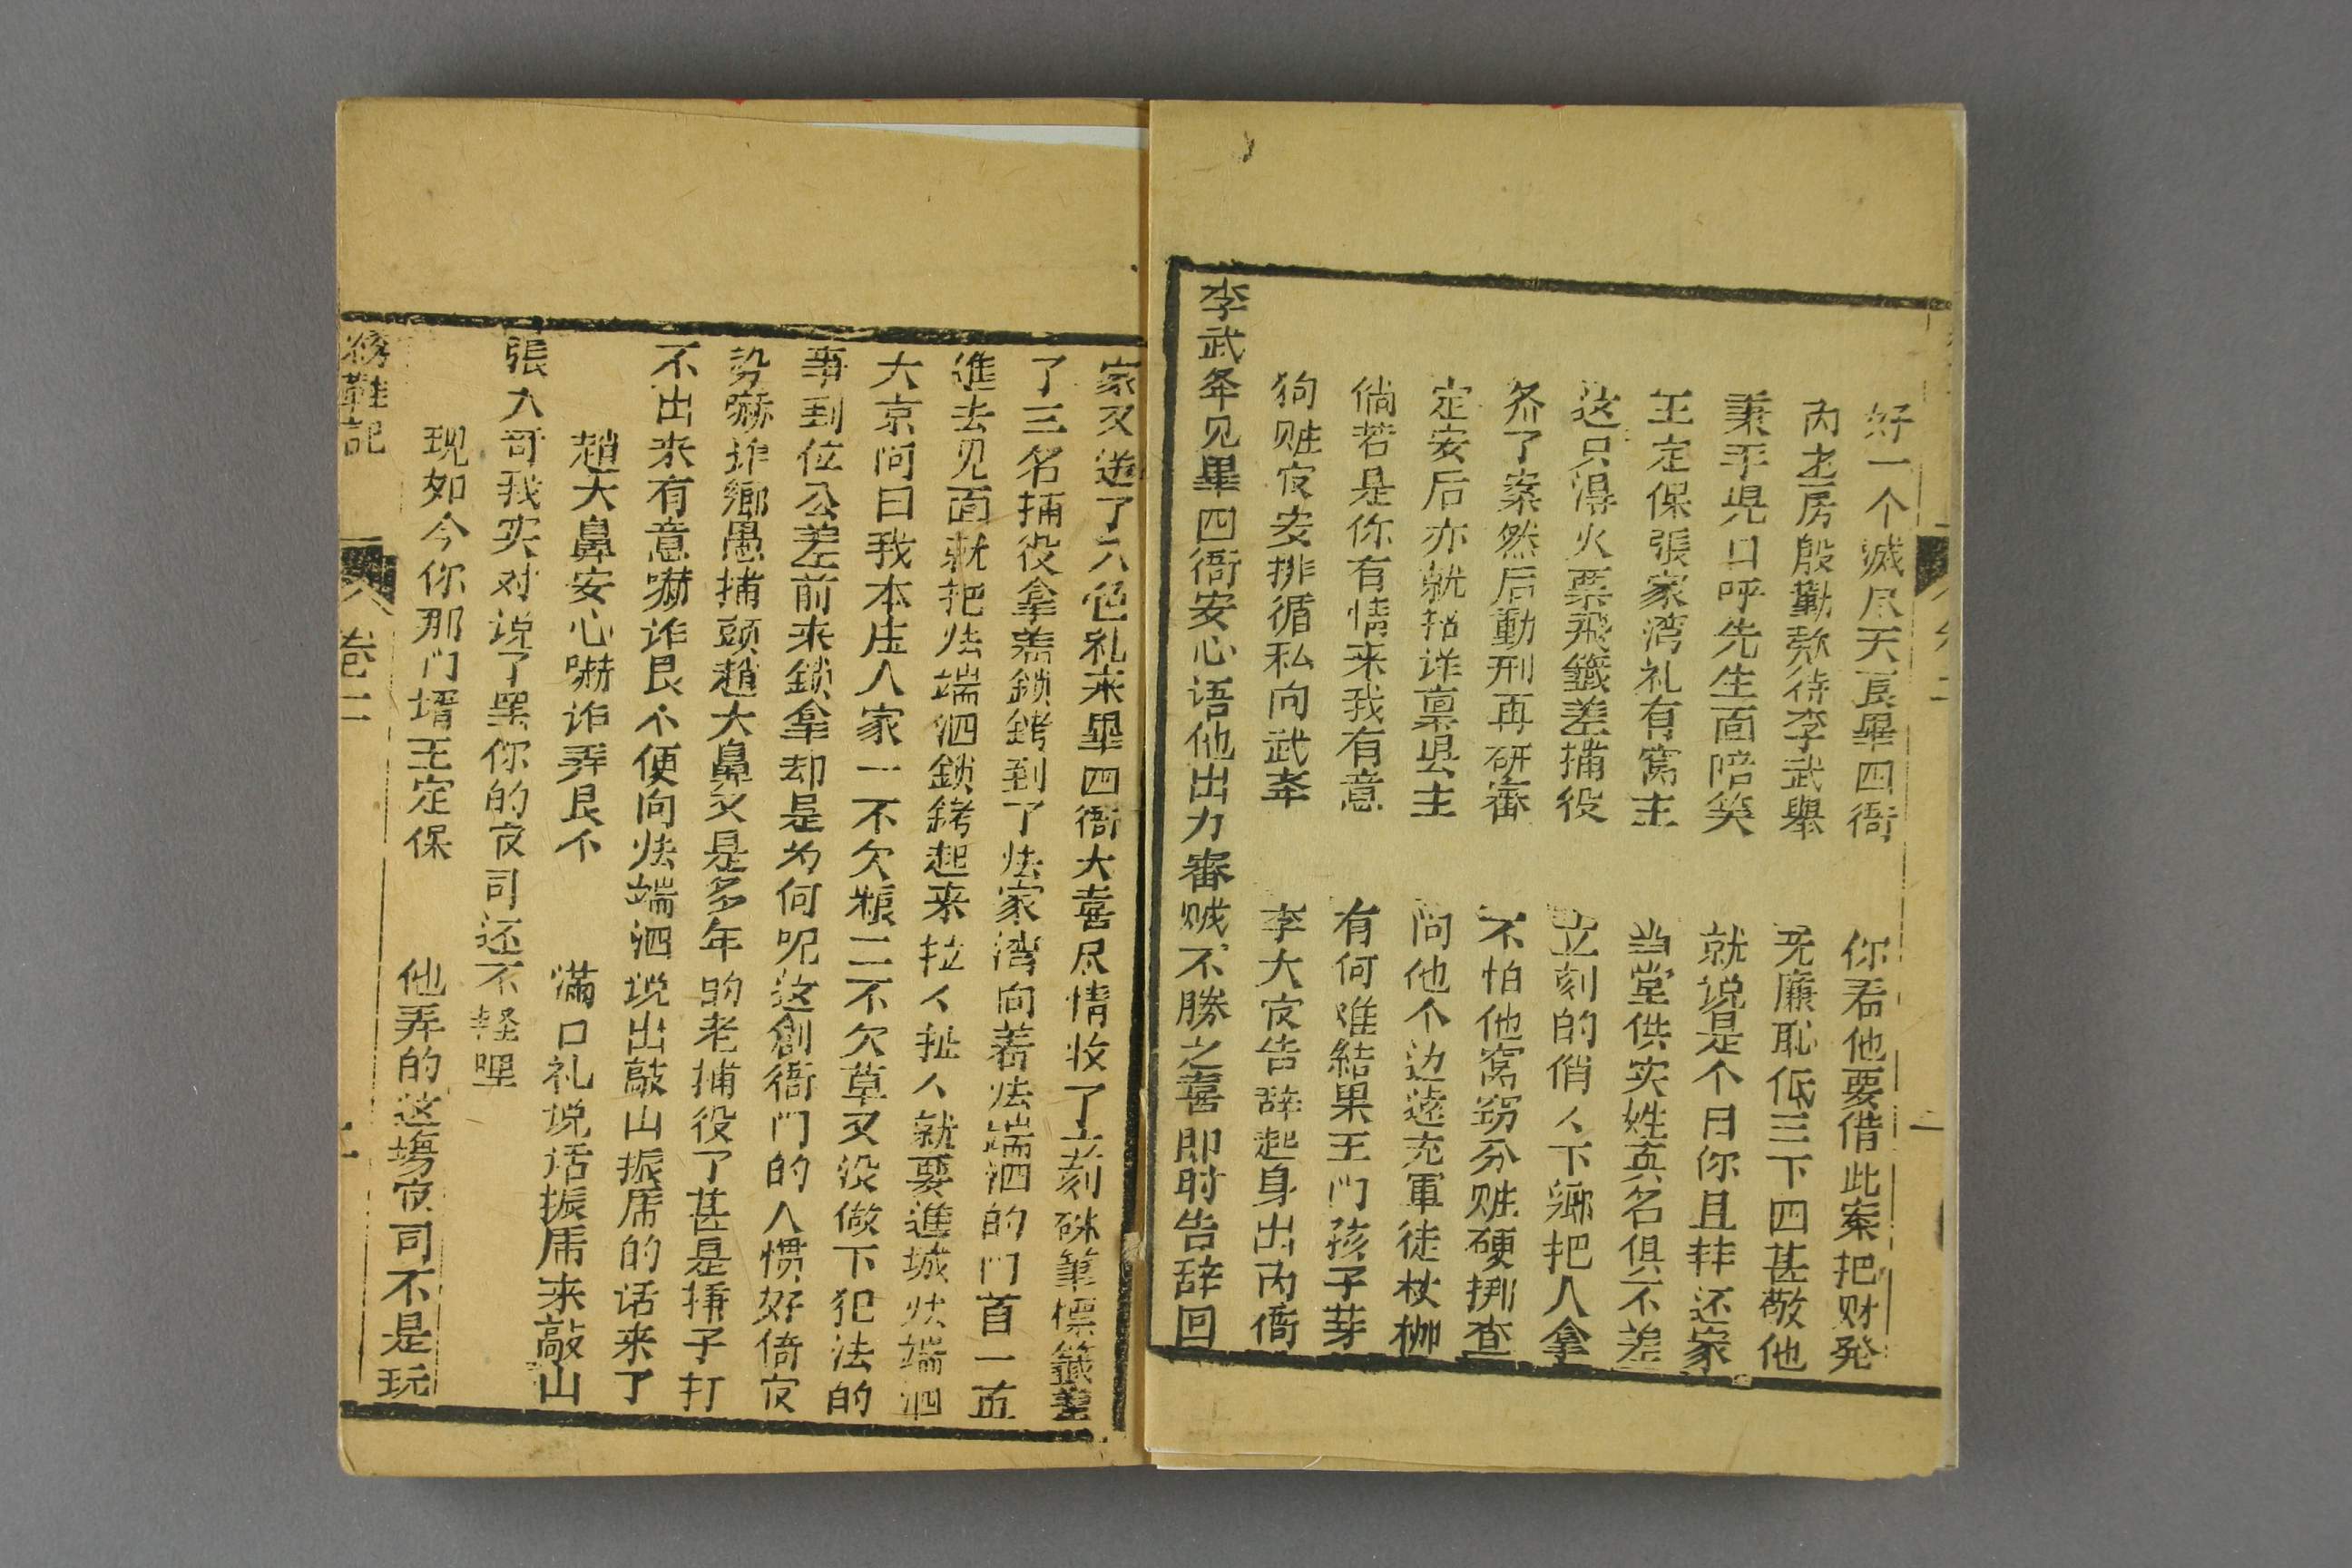 好一个滅尽天良畢四衙 你看他要借此案把财発
丙老房殷勤欵待李武舉 旡廉恥低三下四甚敬他
秉手児口呼先生面陪笑 就说是个日你且拜还家
王定保張家湾礼有窩主 当堂供实姓真名俱不差
这只得火票飛籤差捕役 立刻的俏人下鄉把人拿
备了案然后動刑再研審 不怕他窩窃分赃硬揶查
定安后亦就招详禀县主 问他个边逺充軍徒杖枷
倘若是你有情来我有意 有何难結果王门孩子芽
狥赃官安排循私向武夆 李大官告辞起身出丙衙
李武夆见畢四衙安心语他出力審贼不勝之喜即时告辞回
家又送了八色礼来畢四衙大喜尽情收了立刻硃筆標籤差
了三名捕役拿着鎖銬到了怯家湾向着怯端泗的门首一直
進去见面就把怯端泗鎖銬起来拉人扯人就要進城怯端泗
大京问曰我本庄人家一不欠粮二不欠草又没做下犯法的
事到位公差前来鎖拿却是为何呢这創衙门的人惯好倚官
势嚇诈鄉愚捕頭趙大鼻又是多年的老捕役了甚是捧子打
不出来有意嚇诈艮个便向怯端泗说出敲山振席的话来了
趙大鼻安心嚇诈弄艮个 满口礼说话振席来敲山
張大哥我实对说了罢你的官司还不軽哩
现如今你那门壻王定保 他弄的这塲官司不是玩
绣鞋記 卷二 二